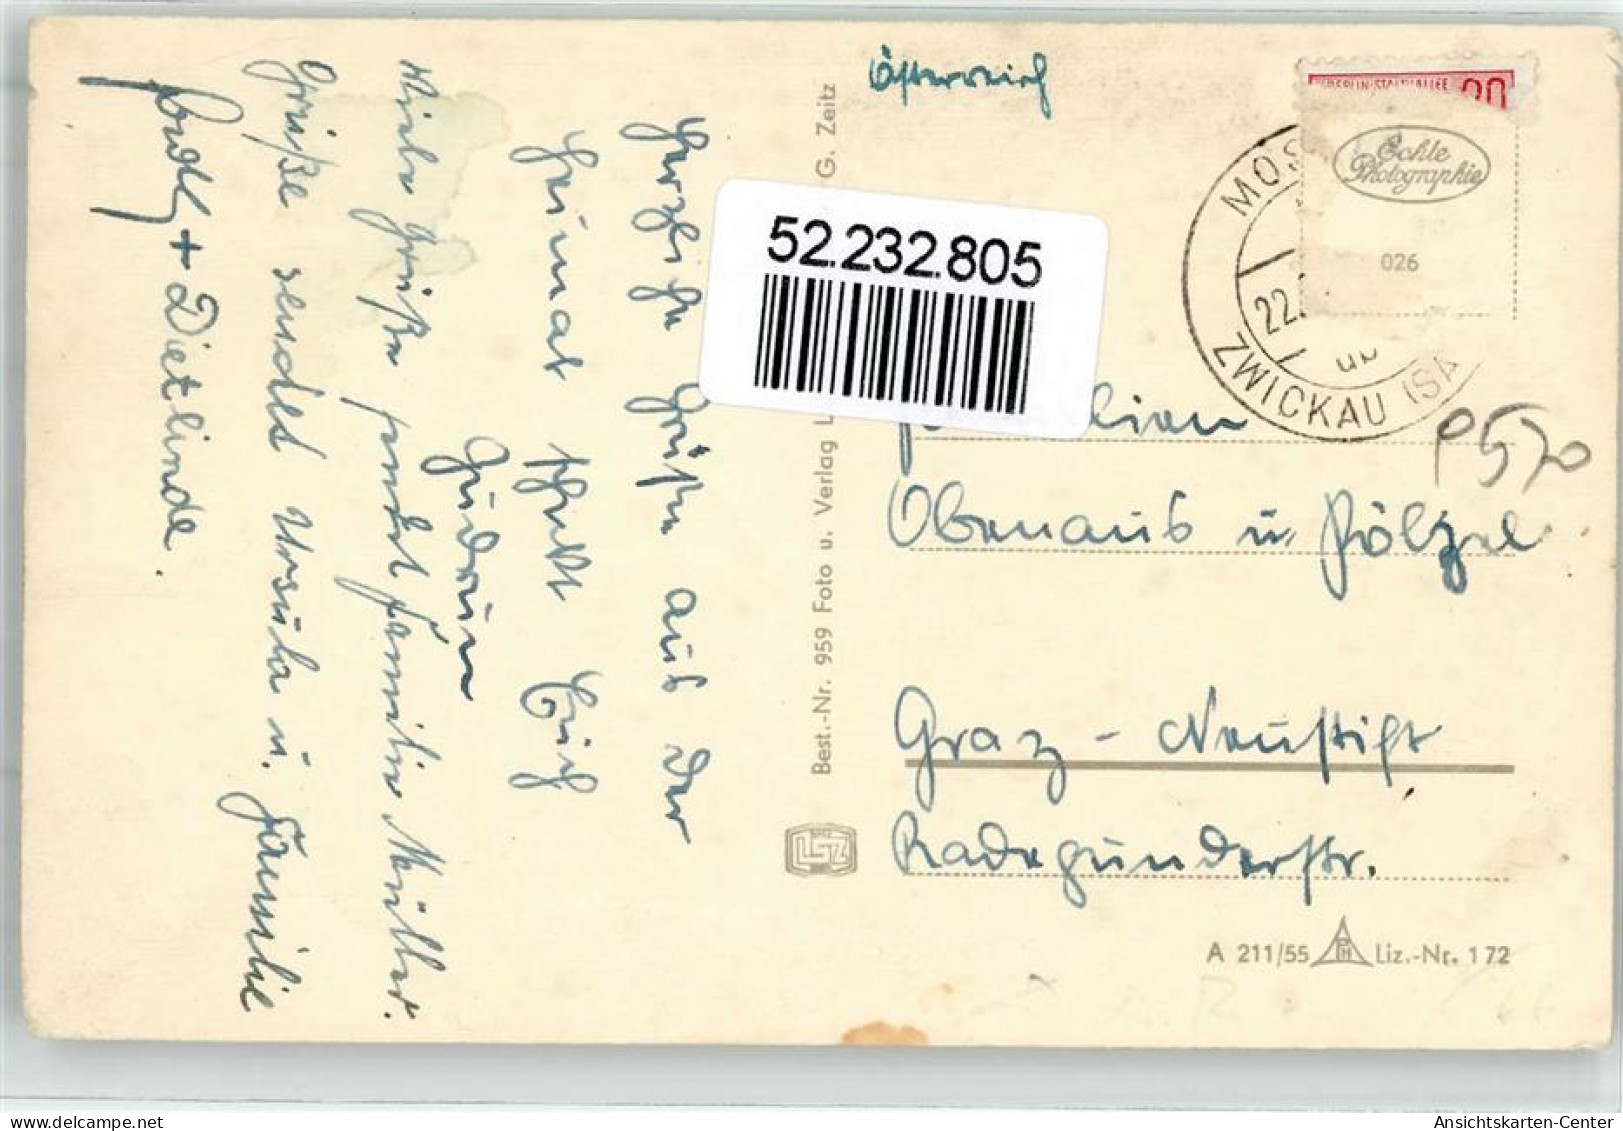 Österreich
BERLIN·STALINALLEE 20
Echte
Photographie
026
MOS
ZWICKAU (SA
22.
ub
52.232.805
Herzliche Grüße aus der
Heimat schickt Euch
Gudrun
Viele Grüße sendet Familie Müller.
Grüße sendet Ursula u. Familie
+ Dietlinde.
G. Zeitz
Best.-Nr. 959 Foto u. Verlag L
LGZ
Familien
Obenaus u. Pölzel
Graz - Neustift
Radegunderstr.
P570
A 211/55 PH Liz.-Nr. 172
delcampe.net
Ansichtskarten-Center